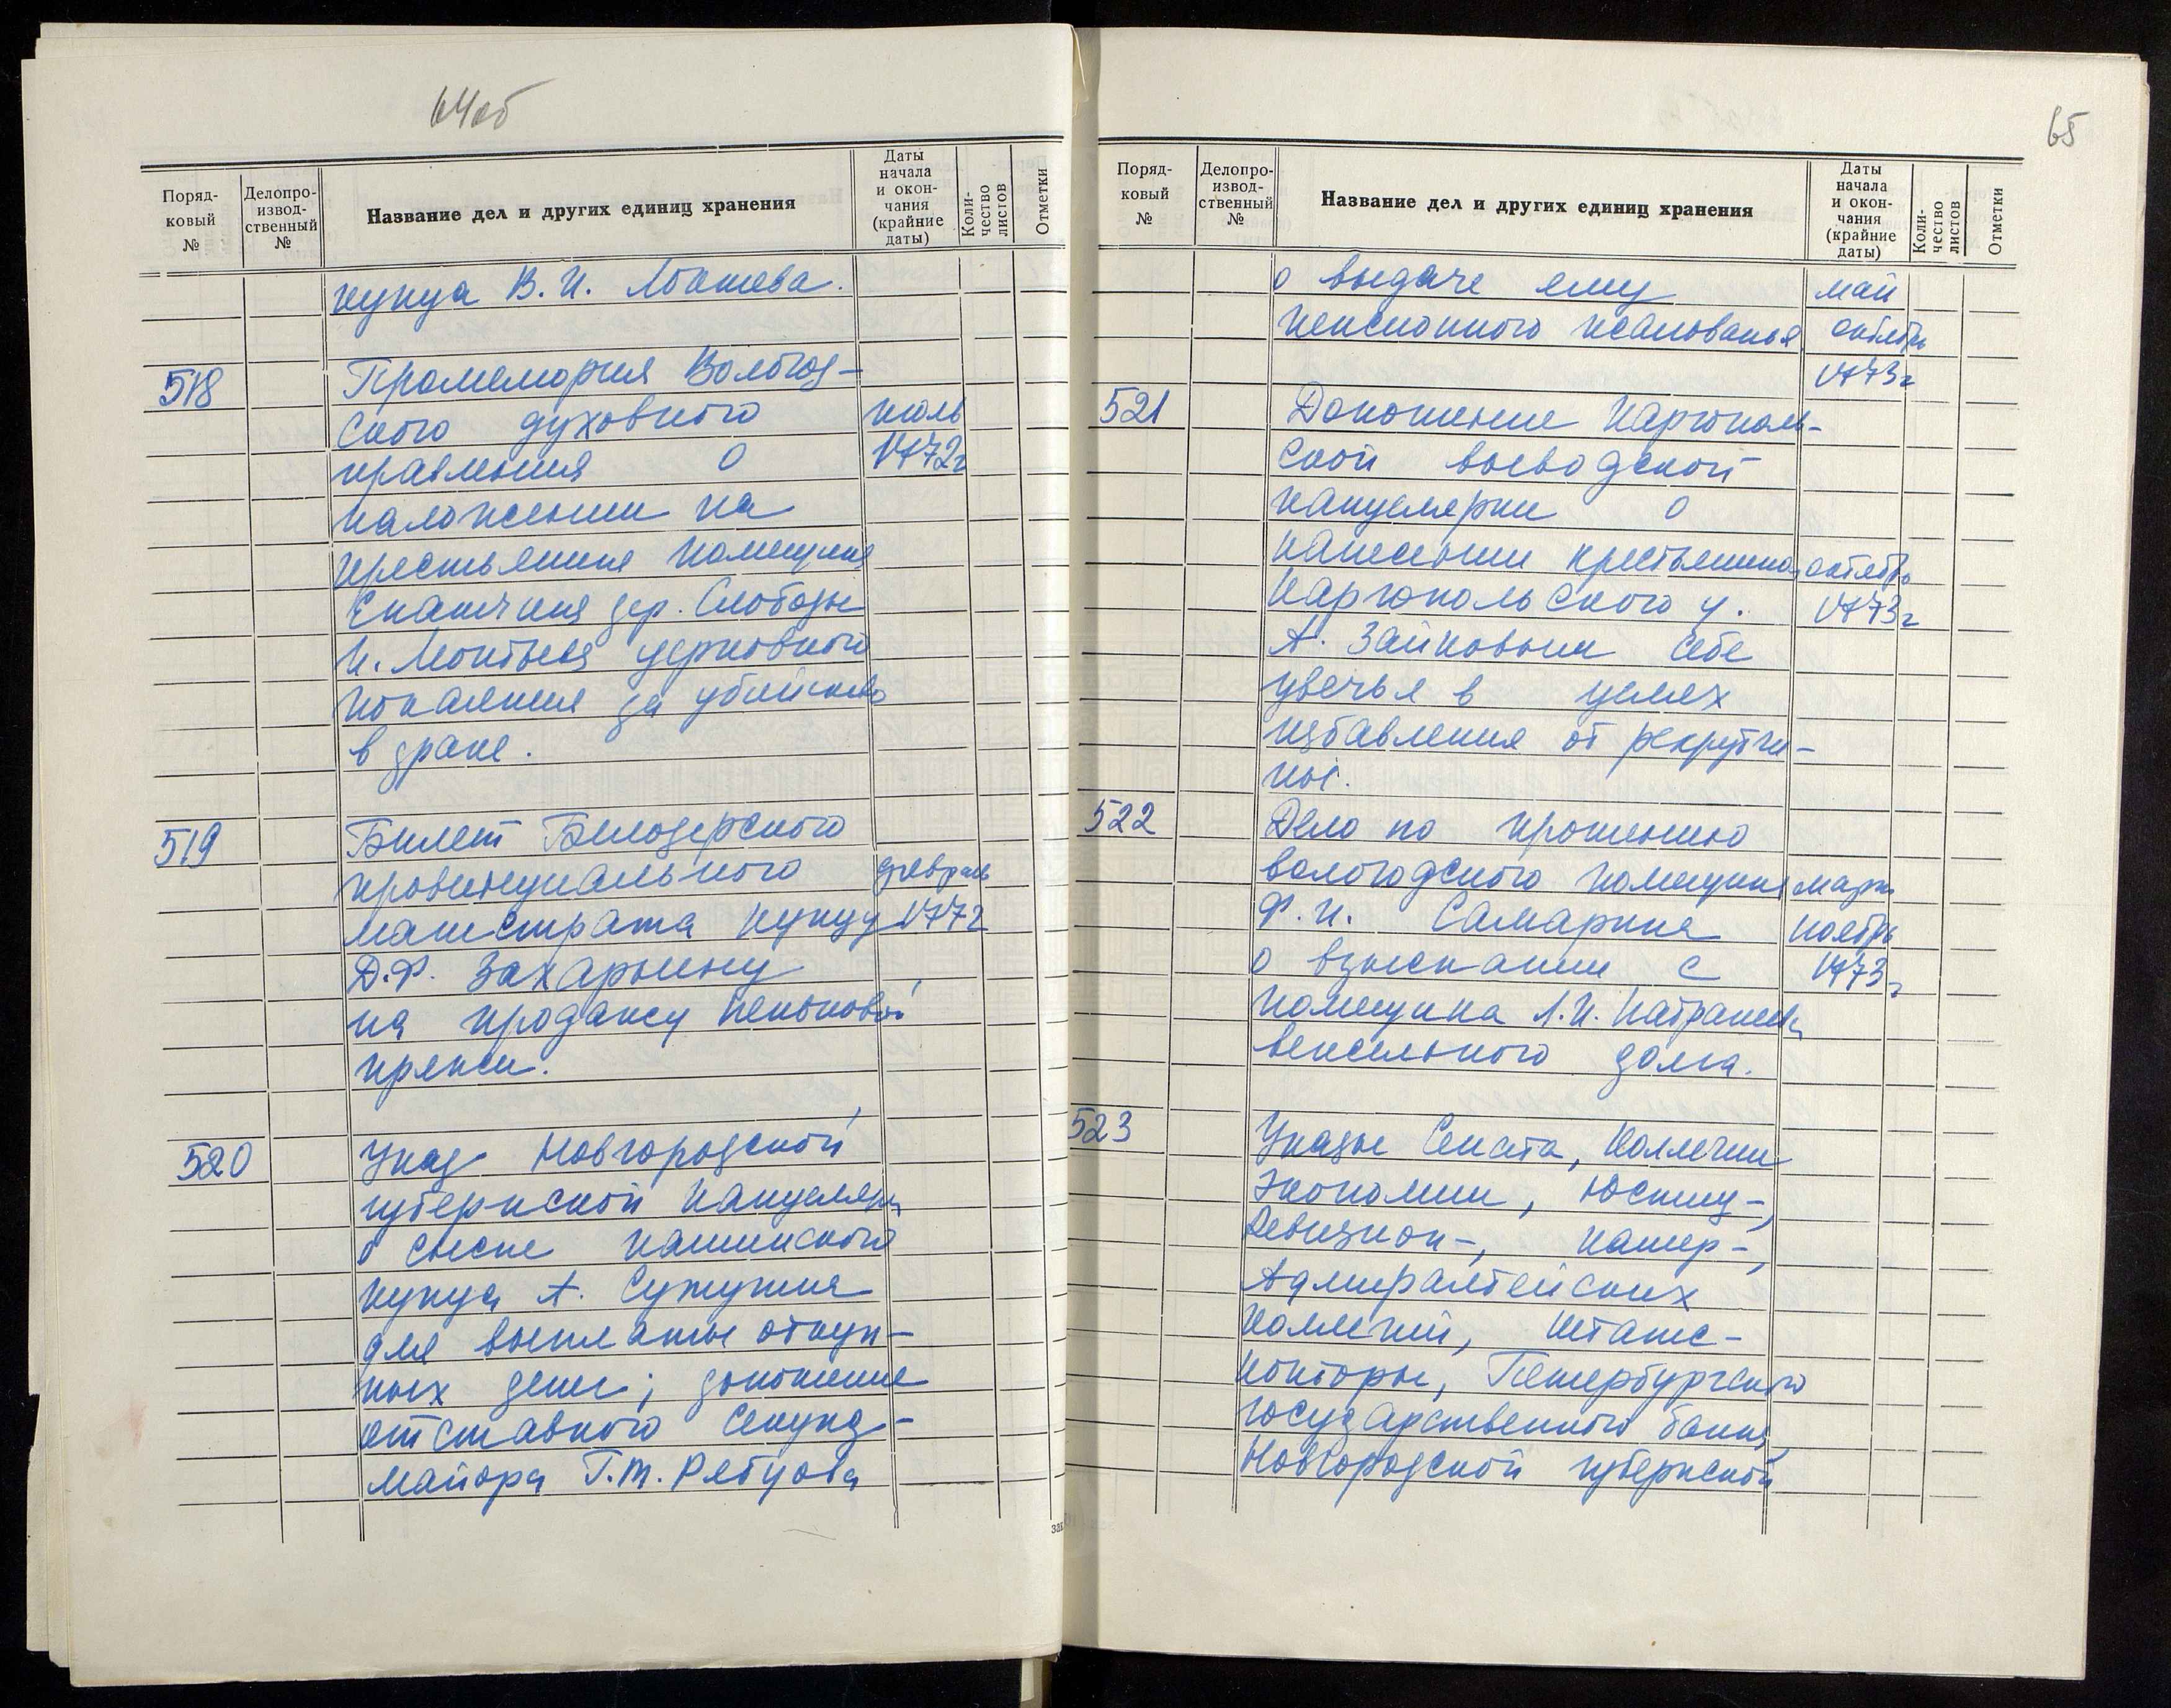 64об
Поряд-
ковый
№
Делопро-
извод-
ственный
№
Название дел и других единиц хранения
Даты
начала
и окон-
чания
(крайние
даты)
Коли-
чество
листов
Отметки
купца В. И.
518
Промемория Вологод-
ского духовного
июль
правления о
1772г
наложении на
крестьянина помещика
дер. Слободы
И. Леонтьева церковного
покаяния за убийство
в драке.
519
Билет Белозерского
провинциального
февраль
магистрата купцу
1772
Д.Ф. Захарьину
на продажу пеньковой
пряжи.
520
Указ Новгородской
губернской канцелярии
о сыске кашинского
купца А. Сутугина
для выплаты откуп-
ных денег; доношение
отставного секунд-
майора Г.Т. Рябцова
65
Поряд-
ковый
№
Делопро-
извод-
ственный
№
Название дел и других единиц хранения
Даты
начала
и окон-
чания
(крайние
даты)
Коли-
чество
листов
Отметки
о выдаче ему
май
пенсионного жалованья.
октябрь
1773г
521
Доношение Каргополь-
ской воеводской
канцелярии о
нанесении крестьянином
октябрь
Каргопольского у.
1773г
А. Зайковым себе
увечья в целях
избавления от рекрутчи-
ны.
522
Дело по прошению
вологодского помещика
март
Ф.И. Самарина
ноябрь
о взыскании с
1773г
помещика Л.И.
вексельного долга.
523
Указы Сената, Коллегии
Экономии, Юстиц-,
Ревизион-, Камер-,
Адмиралтейских
Коллегий, Штатс-
конторы, Петербургского
государственного банка,
Новгородской губернской